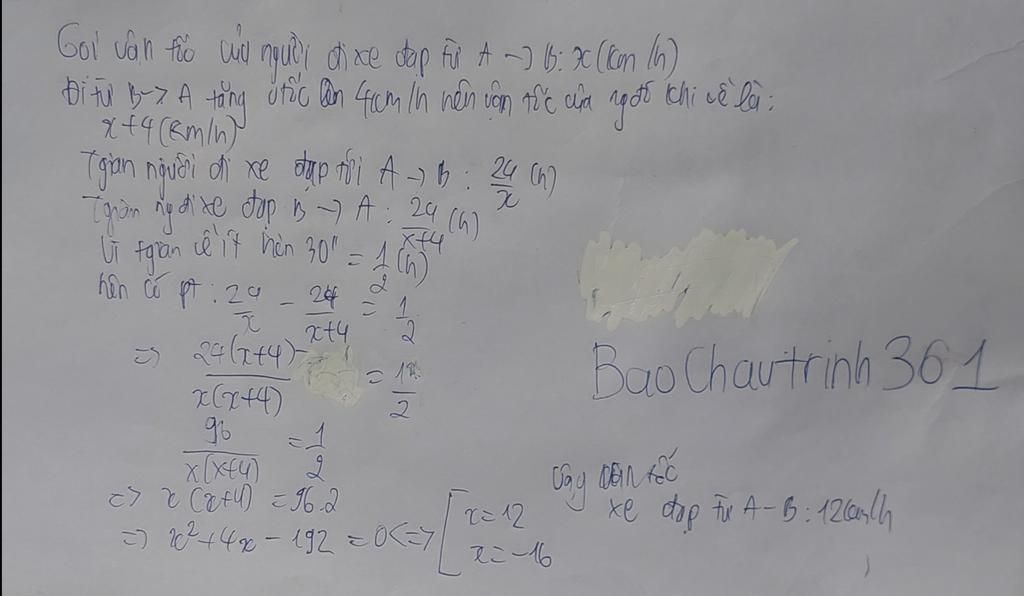 Gọi vận tốc của người đi xe đạp từ A → B: x (km/h)
Đi từ B → A tăng vtốc lên 4km/h nên vận tốc của ngđó khi về là:
x+4 (km/h)
Tgian người đi xe đạp từ A → B: 24/x (h)
Tgian ng đi xe đạp B → A: 24/x+4 (h)
Vì tgian về ít hơn 30" = 1/2 (h)
nên có pt: 24/x - 24/x+4 = 1/2
=> 24(x+4)- /x(x+4) = 1/2
96/x(x+4) = 1/2
=> x(x+4) = 96.2
=> x²+4x-192=0 <=> [x=12
x=-16
Vậy vận tốc
xe đạp từ A-B: 12km/h
BaoChautrinh361